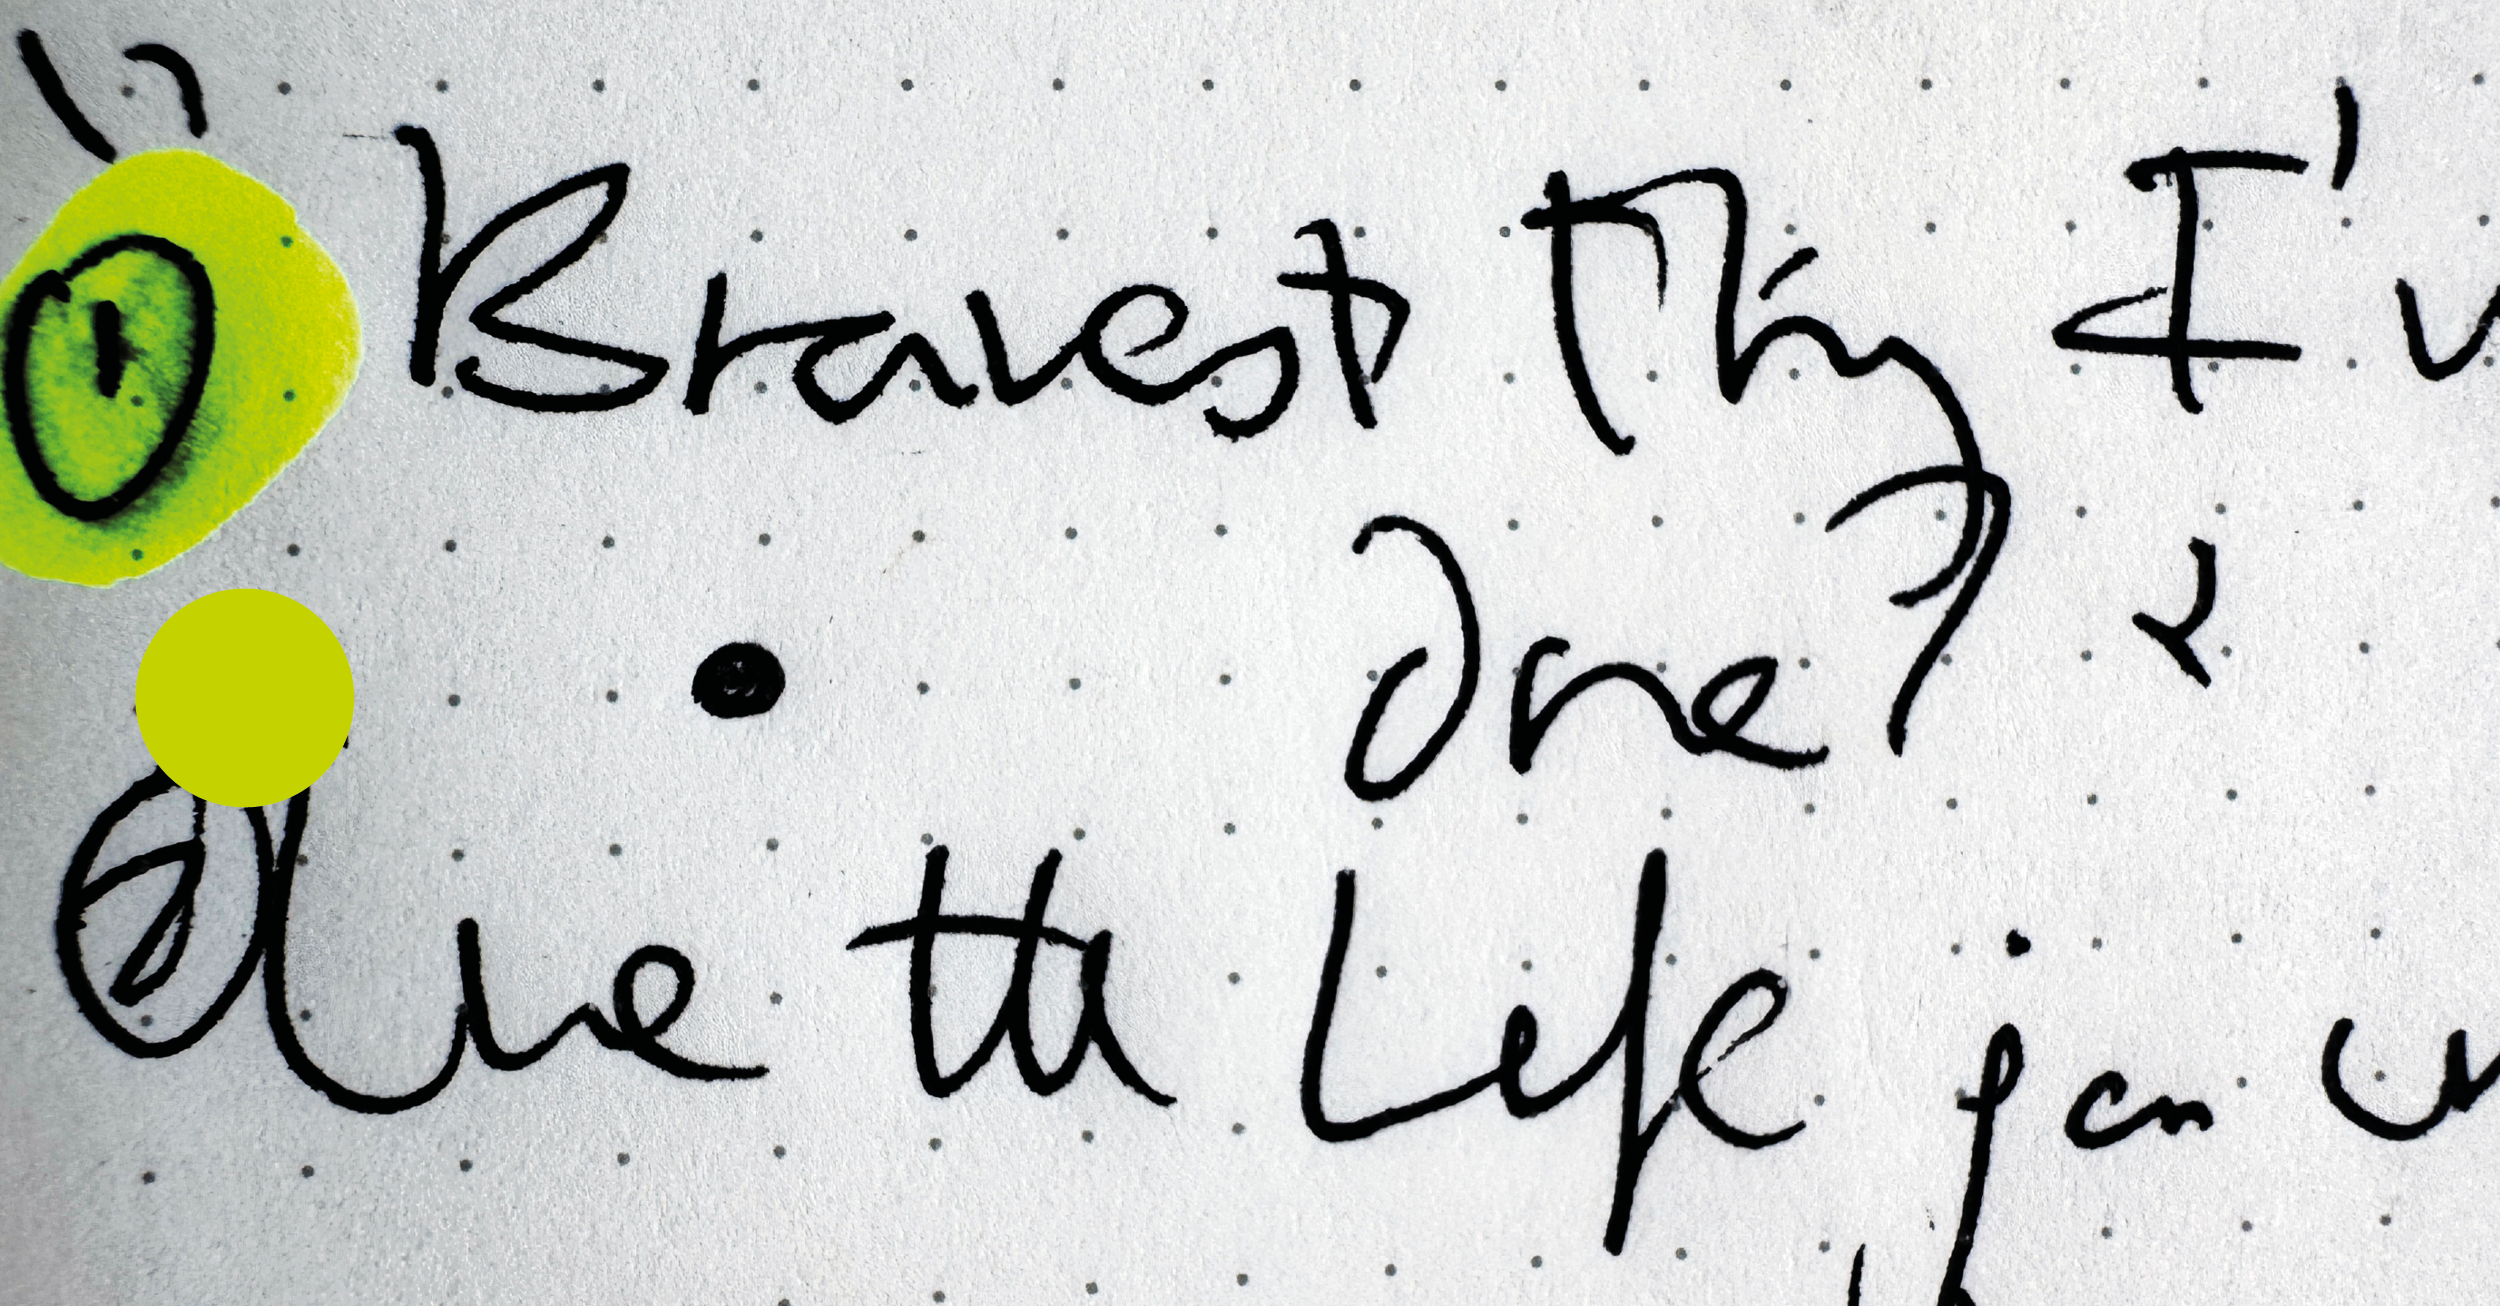 ① Bravest Thing I'v
• done?
Live the Life you w